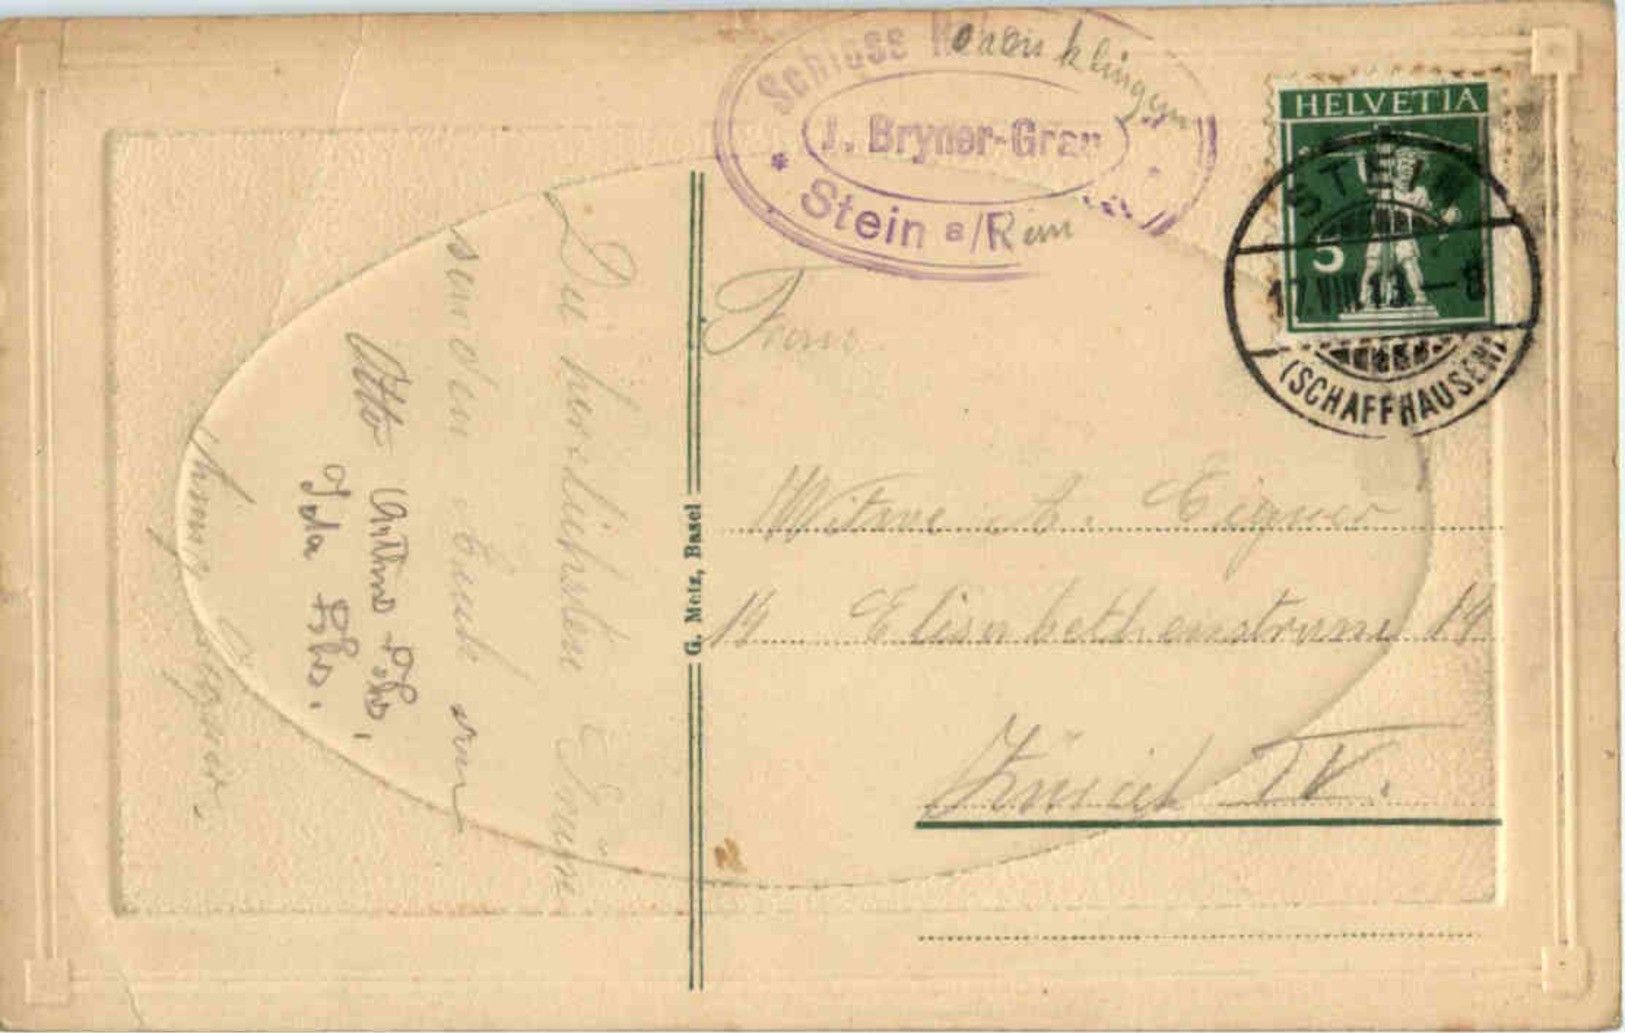 Schloss Hohenklingen
J. Bryner-Graf
Stein a/Rein
HELVETIA
5
STEIN
17.VIII.13.-8
(SCHAFFHAUSEN)
Frau
Witwe A. Eigner
14 Elisabethenstrasse 14
Zürich IV.
G. Metz, Basel
Die herzlichsten Grüsse
senden Euch von
Otto
Ida